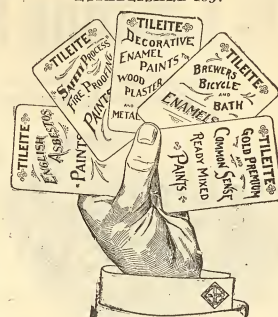 TILEITE
ENGLISH
ASBESTOS
PAINTS
TILEITE
PROCESS
FIRE PROOFING
PAINTS
TILEITE
DECORATIVE
ENAMEL
PAINTS FOR
WOOD
PLASTER
AND
METAL
TILEITE
BREWERS
BICYCLE
AND
BATH
ENAMELS
TILEITE
GOLD PREMIUM
AND
COMMON SENSE
READY MIXED
PAINTS